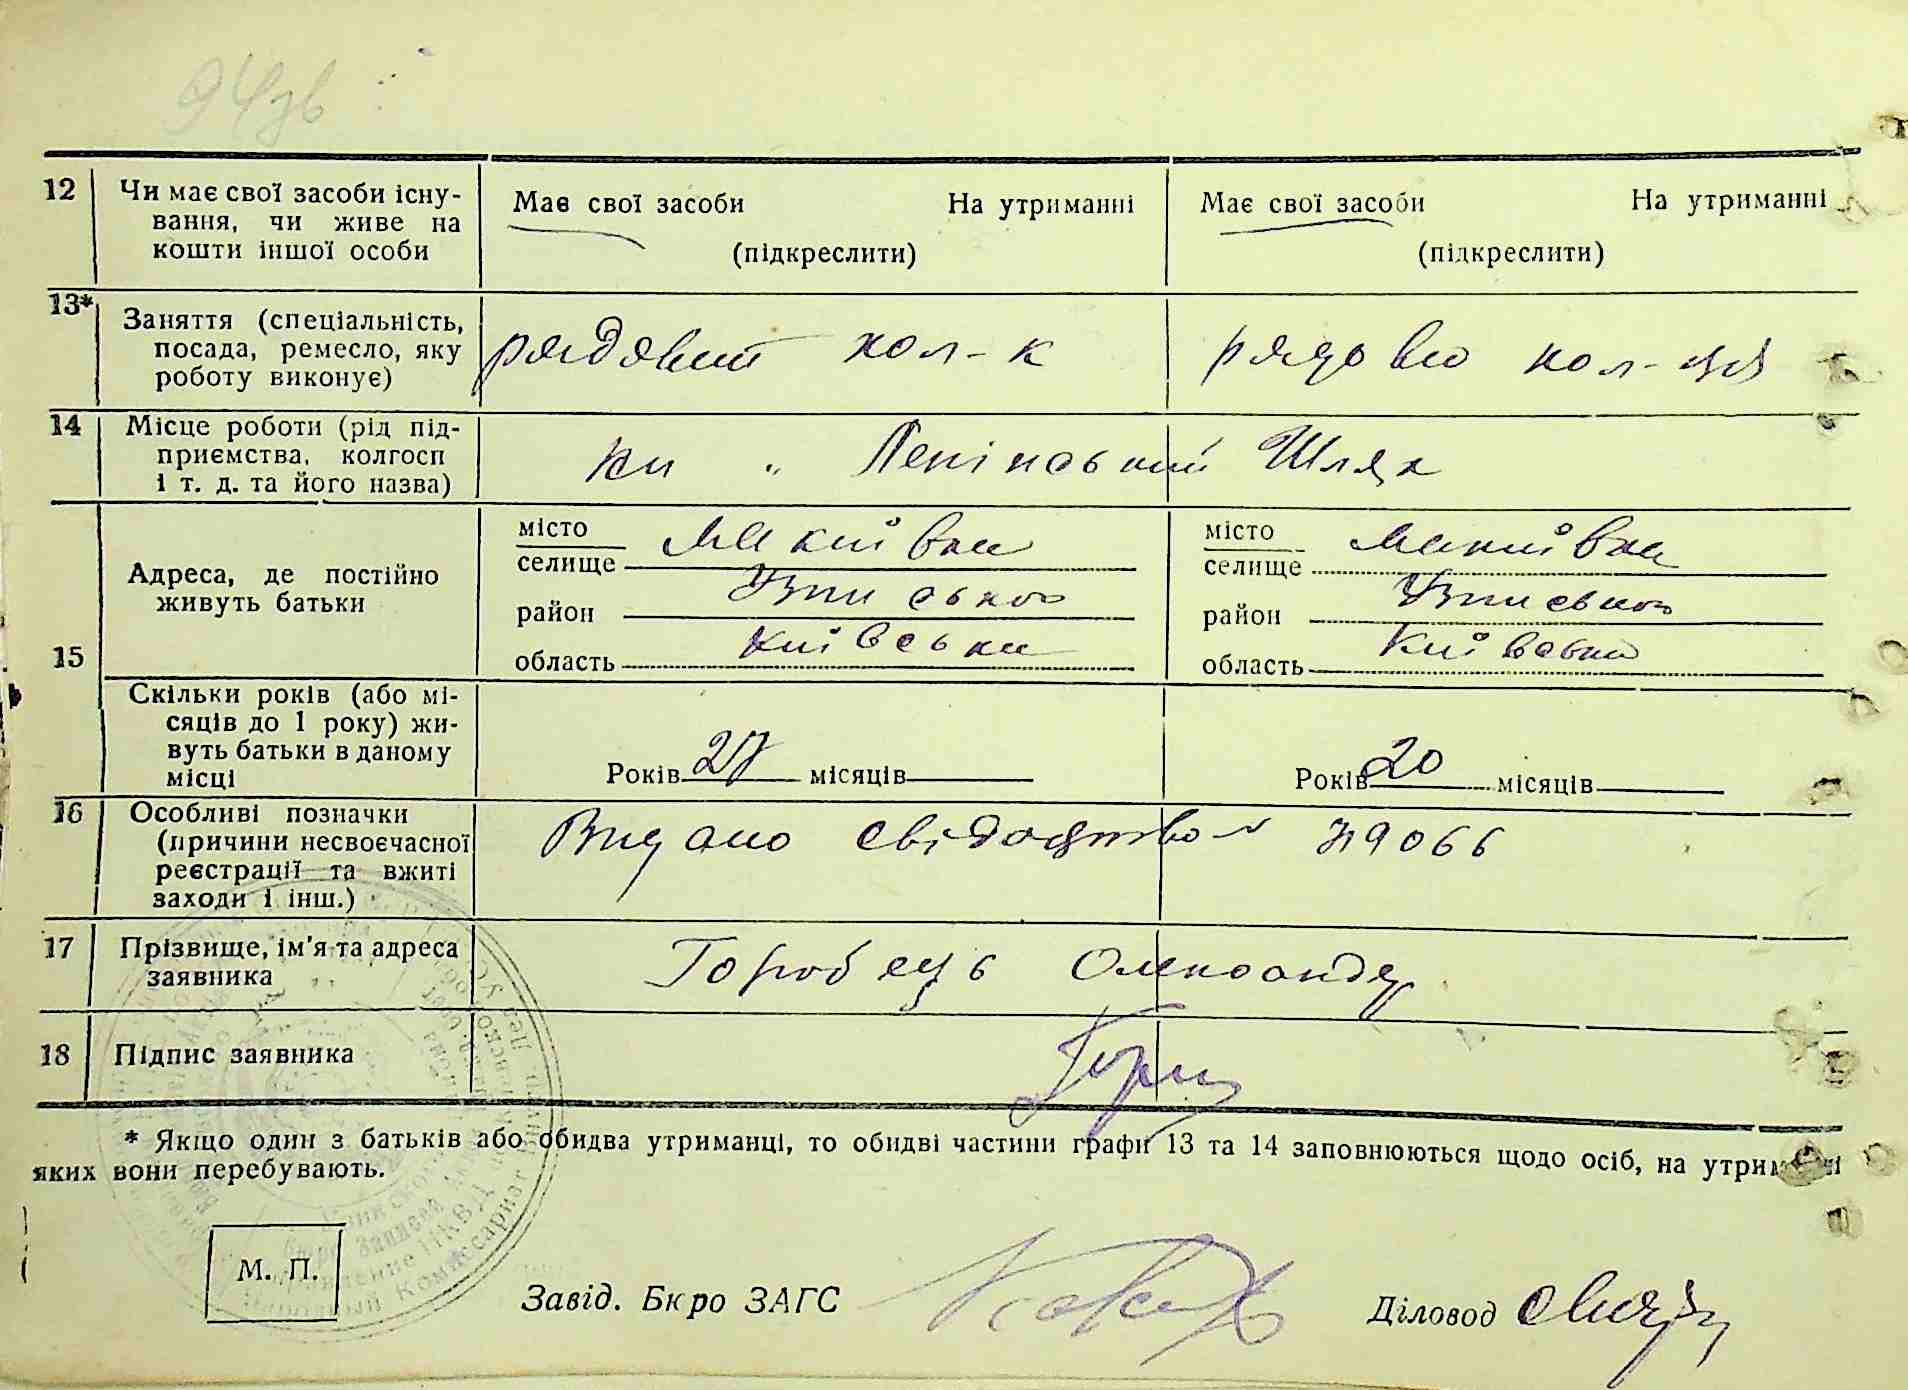 94зв
12 Чи має свої засоби існу-
вання, чи живе на
кошти іншої особи
Має свої засоби На утриманні
(підкреслити)
Має свої засоби На утриманні
(підкреслити)
13* Заняття (спеціальність,
посада, ремесло, яку
роботу виконує)
рядовий кол-к
рядово кол-ця
14 Місце роботи (рід під-
приємства, колгосп
і т. д. та його назва)
Ленінський Шлях
15 Адреса, де постійно
живуть батьки
місто
селище Макиївка
район
область Київська
місто
селище Макиївка
район
область Київська
Скільки років (або мі-
сяців до 1 року) жи-
вуть батьки в даному
місці
Років 27 місяців
Років 20 місяців
16 Особливі позначки
(причини несвоєчасної
реєстрації та вжиті
заходи і інш.)
Видано свідоцтво № 49066
17 Прізвище, ім'я та адреса
заявника
Горобець Олександр
18 Підпис заявника
* Якщо один з батьків або обидва утриманці, то обидві частини графи 13 та 14 заповнюються щодо осіб, на утриманні
яких вони перебувають.
М. П.
Завід. Бюро ЗАГС
Діловод